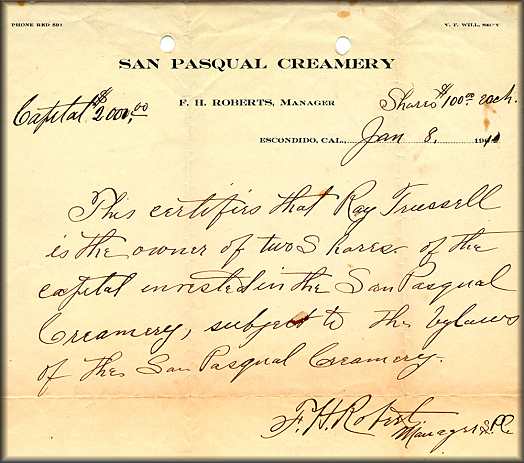 PHONE RED 591
V. F. WILL, SECY
SAN PASQUAL CREAMERY
F. H. ROBERTS, MANAGER
Capital $2000.00
Shares $100.00 each.
ESCONDIDO, CAL., Jan 8, 191
This certifies that Ray Trussell
is the owner of two Shares of the
capital invested in the San Pasqual
Creamery, subject to the bylaws
of the San Pasqual Creamery.
F. H. Roberts
Manager